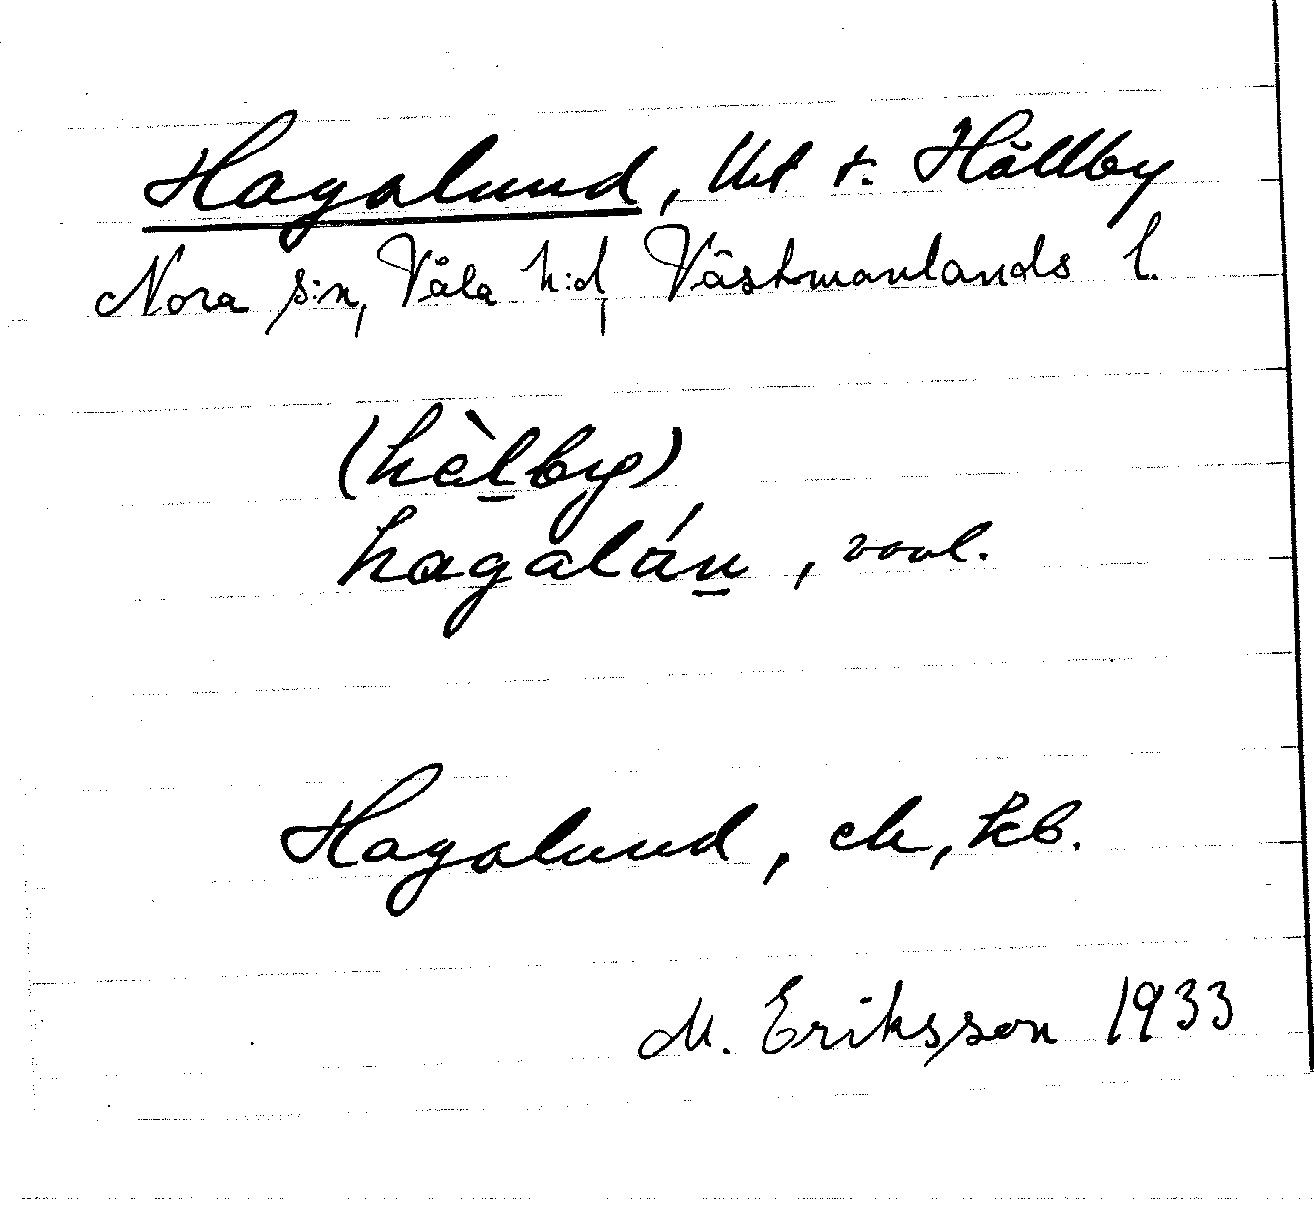 Hagalund, Uel t. Hällby
Nora s:n, Våla h:d, Västmanlands l.
(hèl̲by)
hagalán̲, vavl.
Hagalund, ck, kb.
M. Eriksson 1933